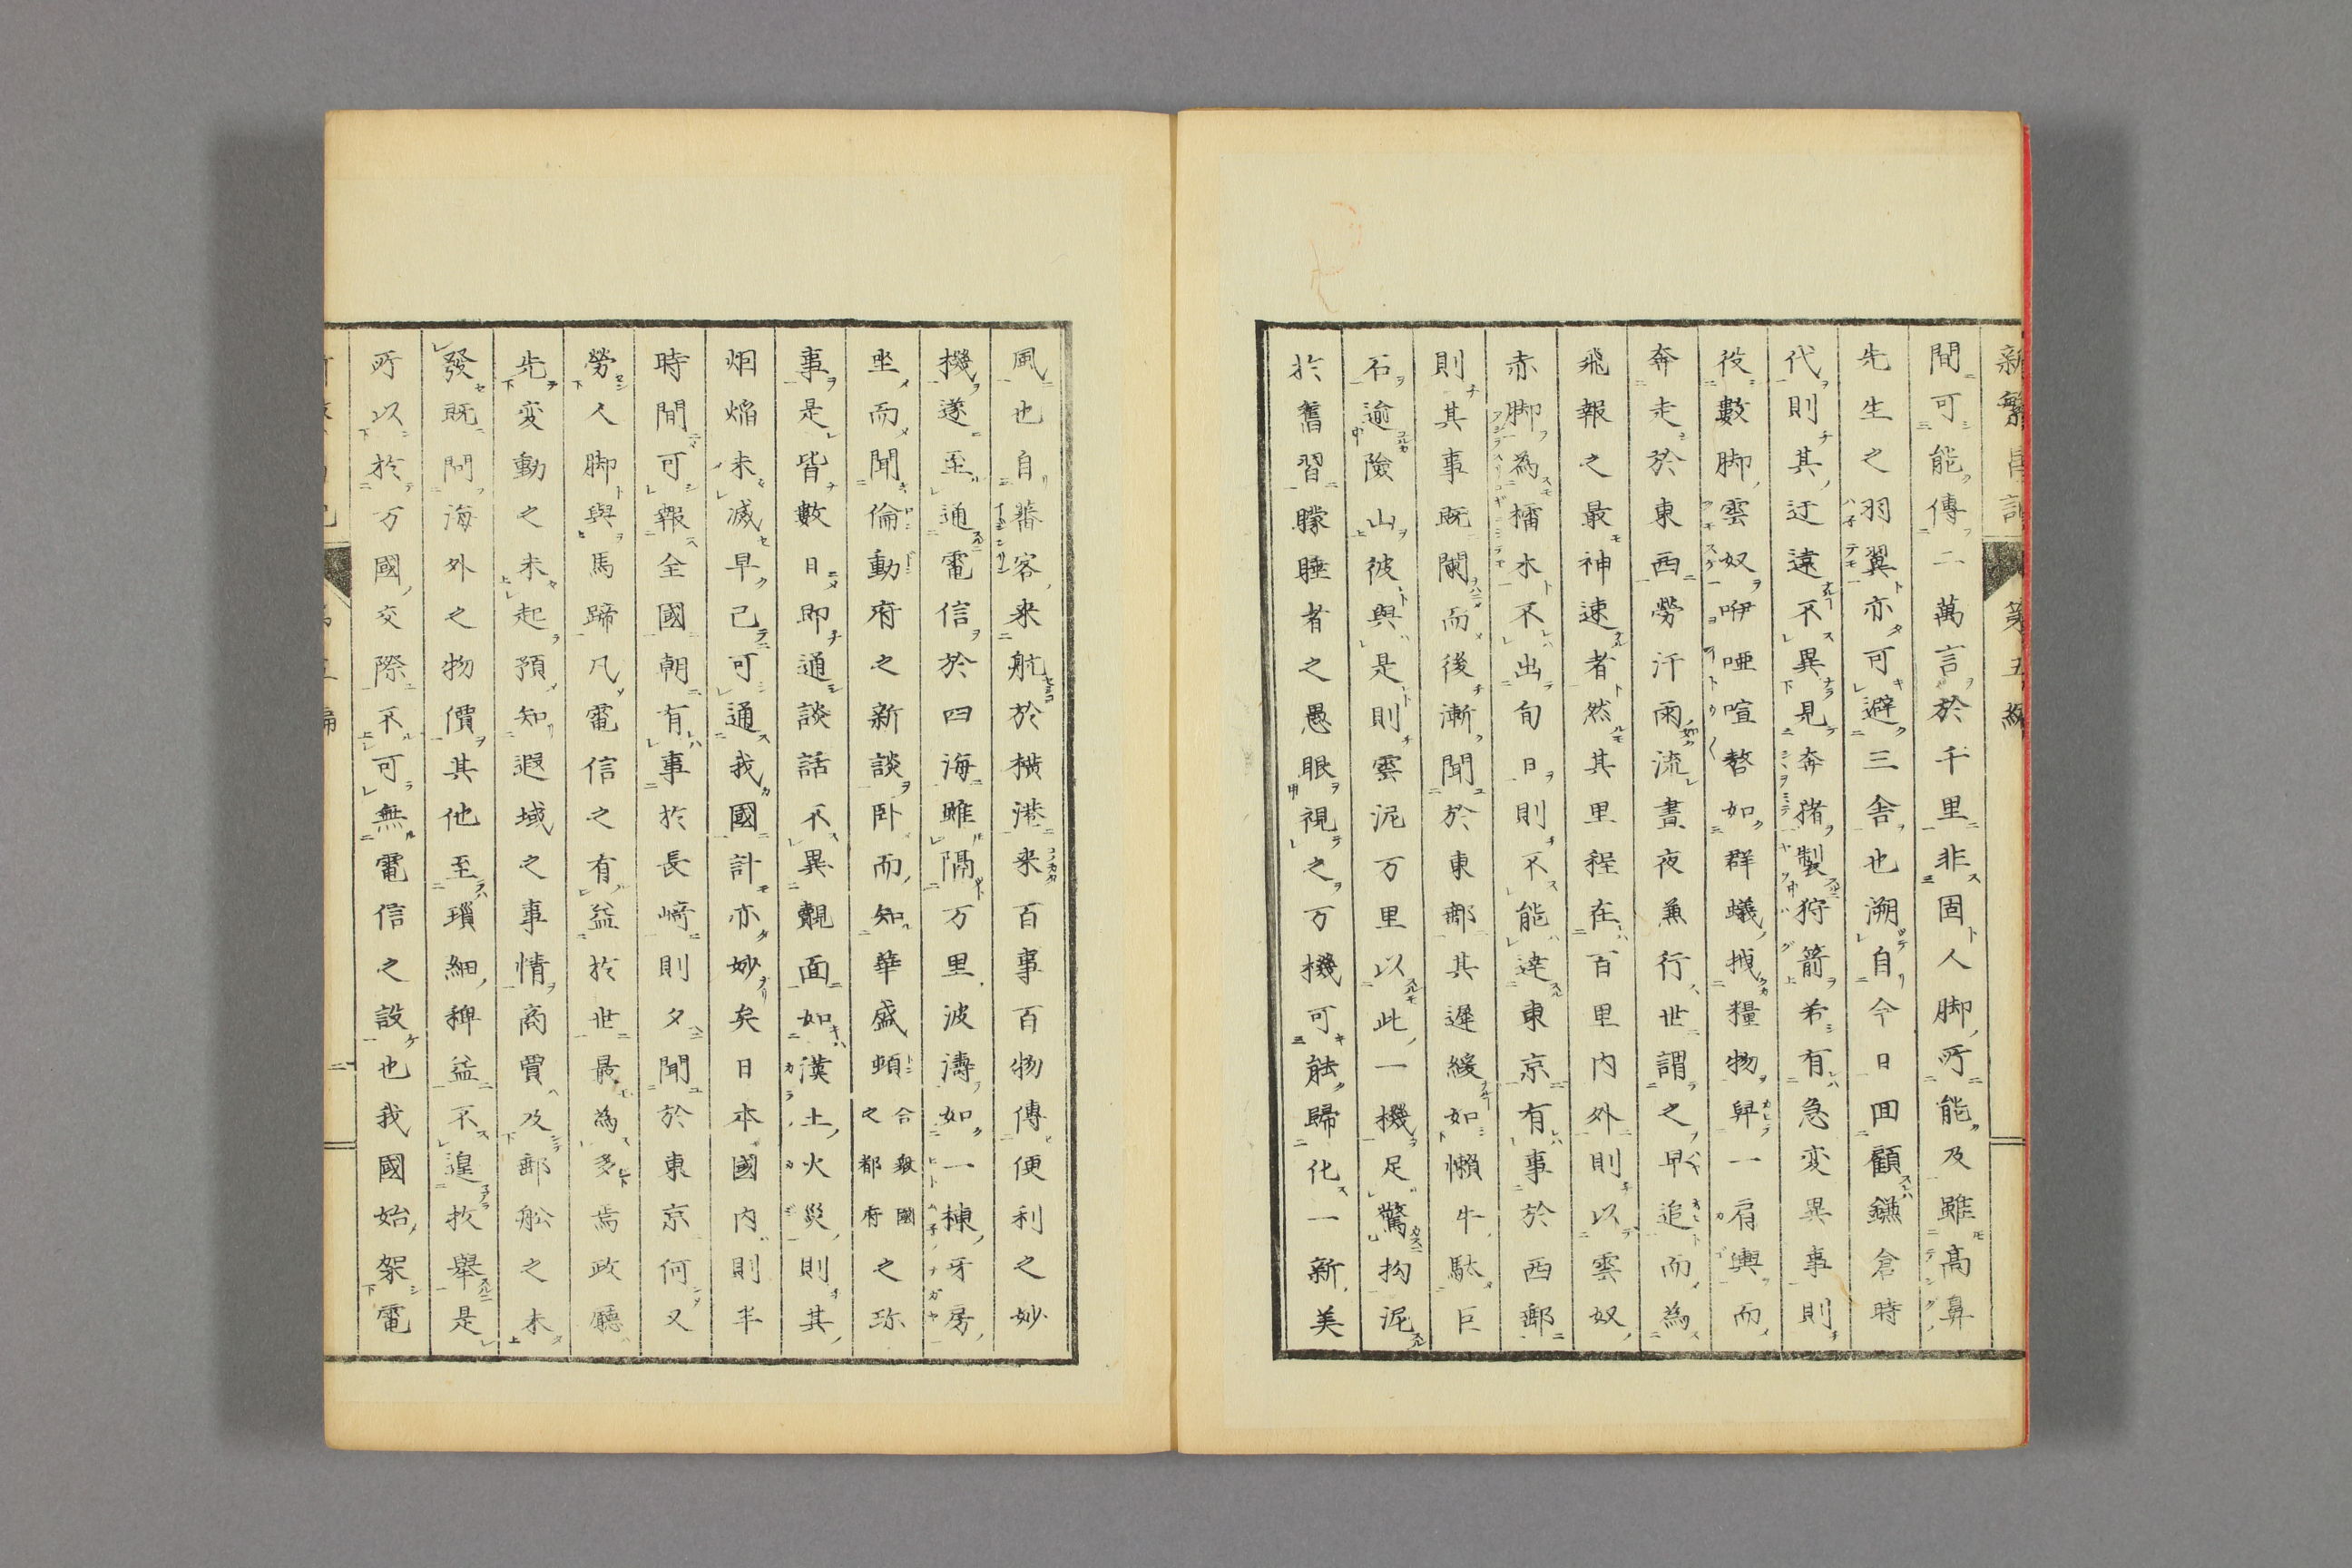 間可能傳二萬言於千里非固人脚所能及雖高鼻
先生之羽翼亦可避三舍也溯自今日回顧鎌倉時
代則其迂遠不異見奔猪製狩箭希有急変異事則
役數脚雲奴咿唖喧嗸如群蟻掫糧物舁一肩輿而
奔走於東西勞汗雨流晝夜兼行世謂之早追而為
飛報之最神速者然其里程在百里内外則以雲奴
赤脚為檑木不出旬日則不能達東京有事於西鄙
則其事既闌而後漸聞於東鄙其遲緩如懶牛駄巨
石逾險山彼與是則雲泥万里以此一機足驚拘泥
於舊習矇睡者之愚眼視之万機可能歸化一新美
風也自蕃客来航於横港来百事百物傳便利之妙
機遂至通電信於四海雖隔万里波濤如一棟牙房
坐而聞倫動府之新談卧而知華盛頓合衆國之都府之珎
事是皆數日即通談話不異覿面如漢土火災則其
烟焔未滅早已可通我國計亦妙矣日本國内則半
時間可報全國朝有事於長﨑則夕聞於東京何又
勞人脚與馬蹄凡電信之有益於世最為多焉政廳
先変動之未起預知遐域之事情商賈及郵舩之未
發既問海外之物價其他至瑣細稗益不遑枚舉是
所以於万國交際不可無電信之設也我國始架電